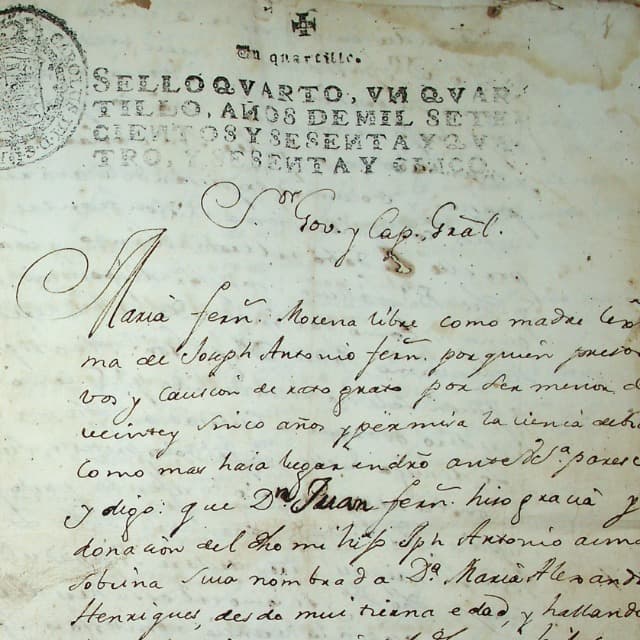 Un quartillo.
SELLO QVARTO, VN QVAR
TILLO, AÑOS DE MIL SETE
CIENTOS Y SESENTA Y QVA
TRO, Y SESENTA Y CINCO
S.or Gov. y Cap. Grãl.
Maria ferñ. Morena libre como madre lexi
ma de Joseph Antonio ferñ. por quien presto
vos y caucion de rato grato por ser menor de
veinte y sinco años y permisa la venia
como mas haia lugar en dro ante V.Sª paresco
y digo: que Dn Juan ferñ. hiso gracia y
donacion del dho mi hijo Jph Antonio a una
sobrina suia nombrada Dª Maria Alexand
Henriques, desde mui tierna edad, y halland